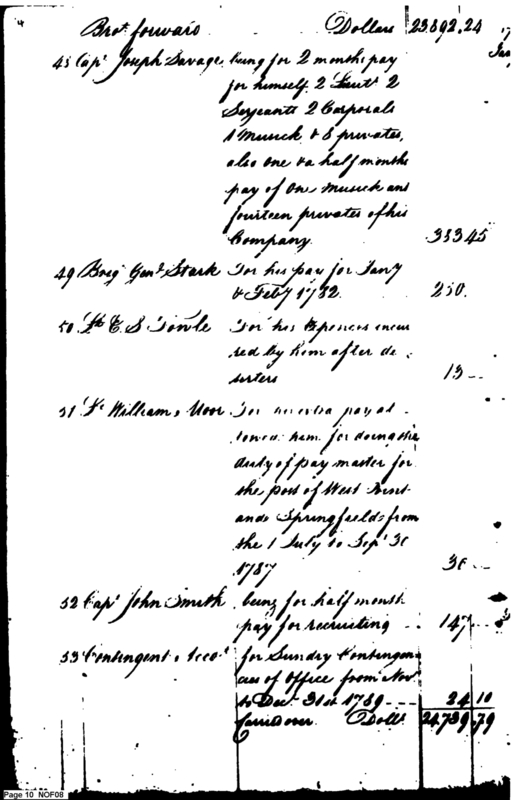 4
Brot. forward Dollars 23.892.24
48 Capt. Joseph Savage being for 2 months pay
for himself 2 Lieuts 2
Sergeants 2 Corporals
1 Musick & 8 privates,
also one & a half months
pay of One Musick and
fourteen privates of his
Company. 353 45
49 Brig Genl. Stark For his pay for Jany
& Feby 1782. 250.
50 Lt. E. S. Towle For his Expences incur
red by him after de
serters 13 --
51 Lt William Moor For his extra pay al
lowed him for doing the
duty of pay master for
the post of West Point
and Springfield from
the 1 July to Sept 30
1787 30 --
52 Capt John Smith being for half month
pay for recruiting 147 --
53 Contingent Acct. for Sundry Contingen
cies of Office from Novr
to Decr. 31st 1789 24 10
Carried over Dolls. 24,739.79
Page 10 NOF08